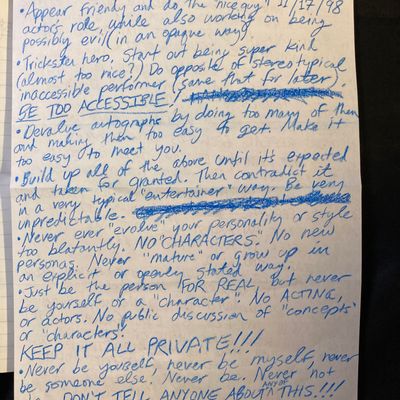 • Appear friendly and do the "nice guy" 11/17/98
actors role, while also working on being
possibly evil (in an opaque way)
• Trickster hero, start out being super kind
(almost too nice!) Do opposite of stereotypical
inaccessible performer (same that for later)
BE TOO ACCESSIBLE!
• Devalue autographs by doing too many of them
and making them too easy to get. Make it
too easy to meet you.
• Build up all of the above until it's expected
and taken for granted. Then contradict it
in a very typical "entertainer" way. Be very
unpredictable.
• Never ever "evolve" your personality or style
too blatantly. NO "CHARACTERS". No new
personas. Never "mature" or grow up in
an explicit or openly stated way.
• Just be the person FOR REAL but never
be yourself, or a "character". No ACTING,
or actors. No public discussion of "concepts"
or "characters."
KEEP IT ALL PRIVATE!!!
• Never be yourself, never be myself, never
be someone else. Never be. Never not
be. DON'T TELL ANYONE ABOUT ANY OF THIS!!!